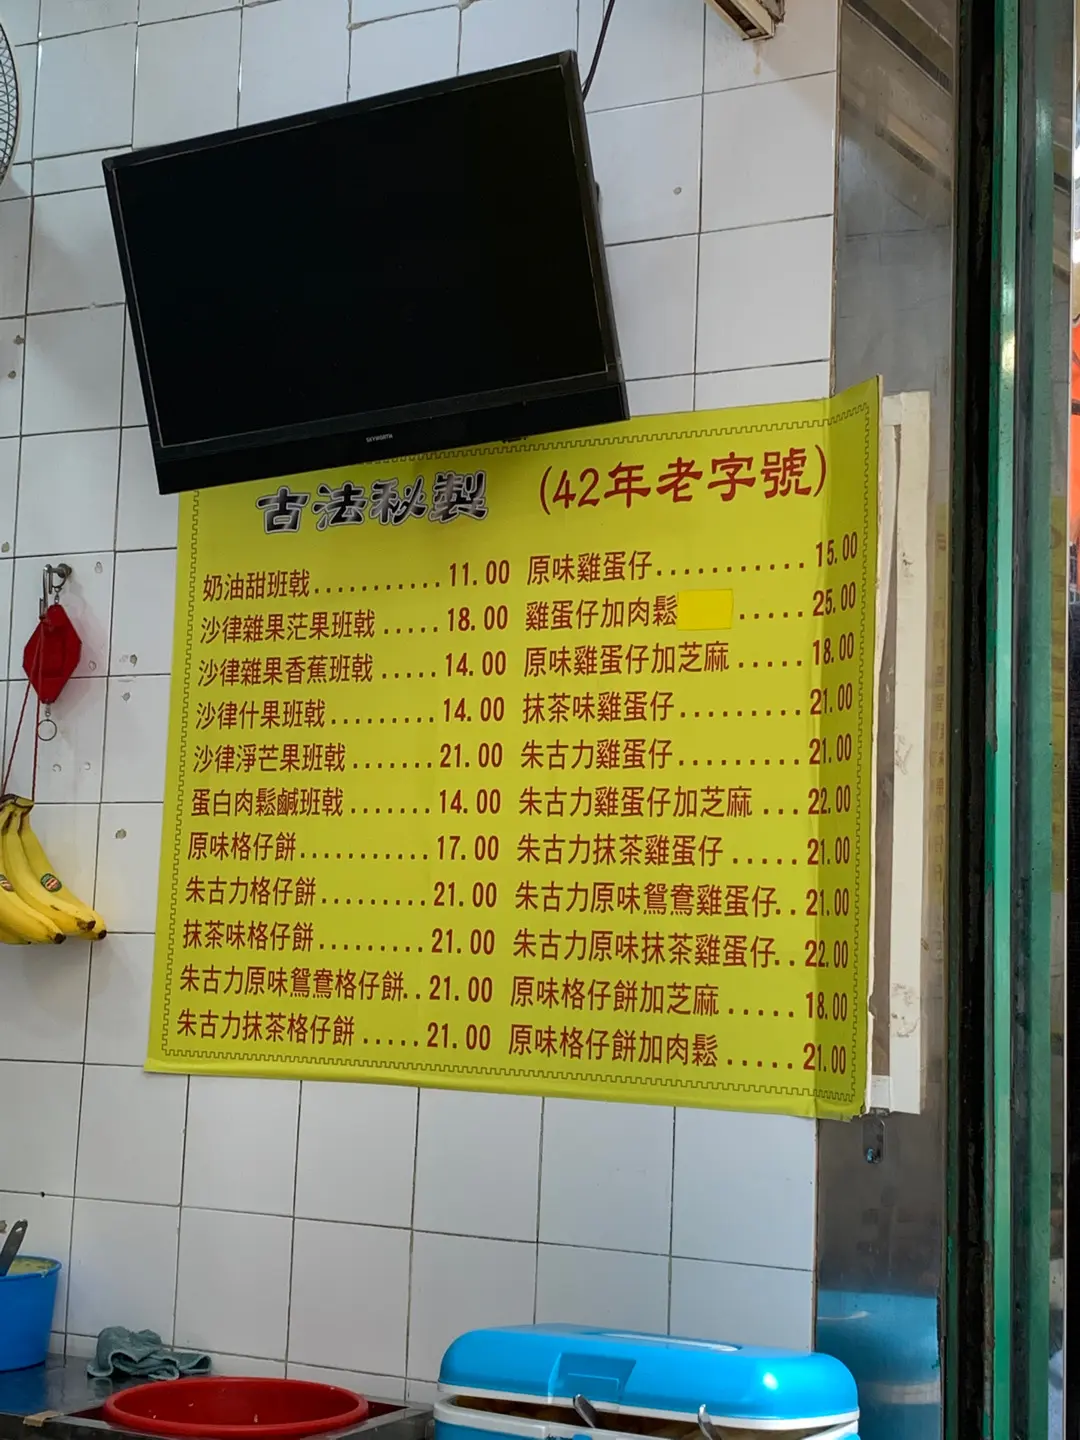 SKYWORTH
古法秘製 (42年老字號)
奶油甜班戟..........11.00
沙律雜果茫果班戟.....18.00
沙律雜果香蕉班戟.....14.00
沙律什果班戟.........14.00
沙律淨芒果班戟.......21.00
蛋白肉鬆鹹班戟.......14.00
原味格仔餅...........17.00
朱古力格仔餅.........21.00
抹茶味格仔餅.........21.00
朱古力原味鴛鴦格仔餅..21.00
朱古力抹茶格仔餅.....21.00
原味雞蛋仔...........15.00
雞蛋仔加肉鬆.....25.00
原味雞蛋仔加芝麻.....18.00
抹茶味雞蛋仔.........21.00
朱古力雞蛋仔.........21.00
朱古力雞蛋仔加芝麻...22.00
朱古力抹茶雞蛋仔.....21.00
朱古力原味鴛鴦雞蛋仔..21.00
朱古力原味抹茶雞蛋仔..22.00
原味格仔餅加芝麻.....18.00
原味格仔餅加肉鬆.....21.00